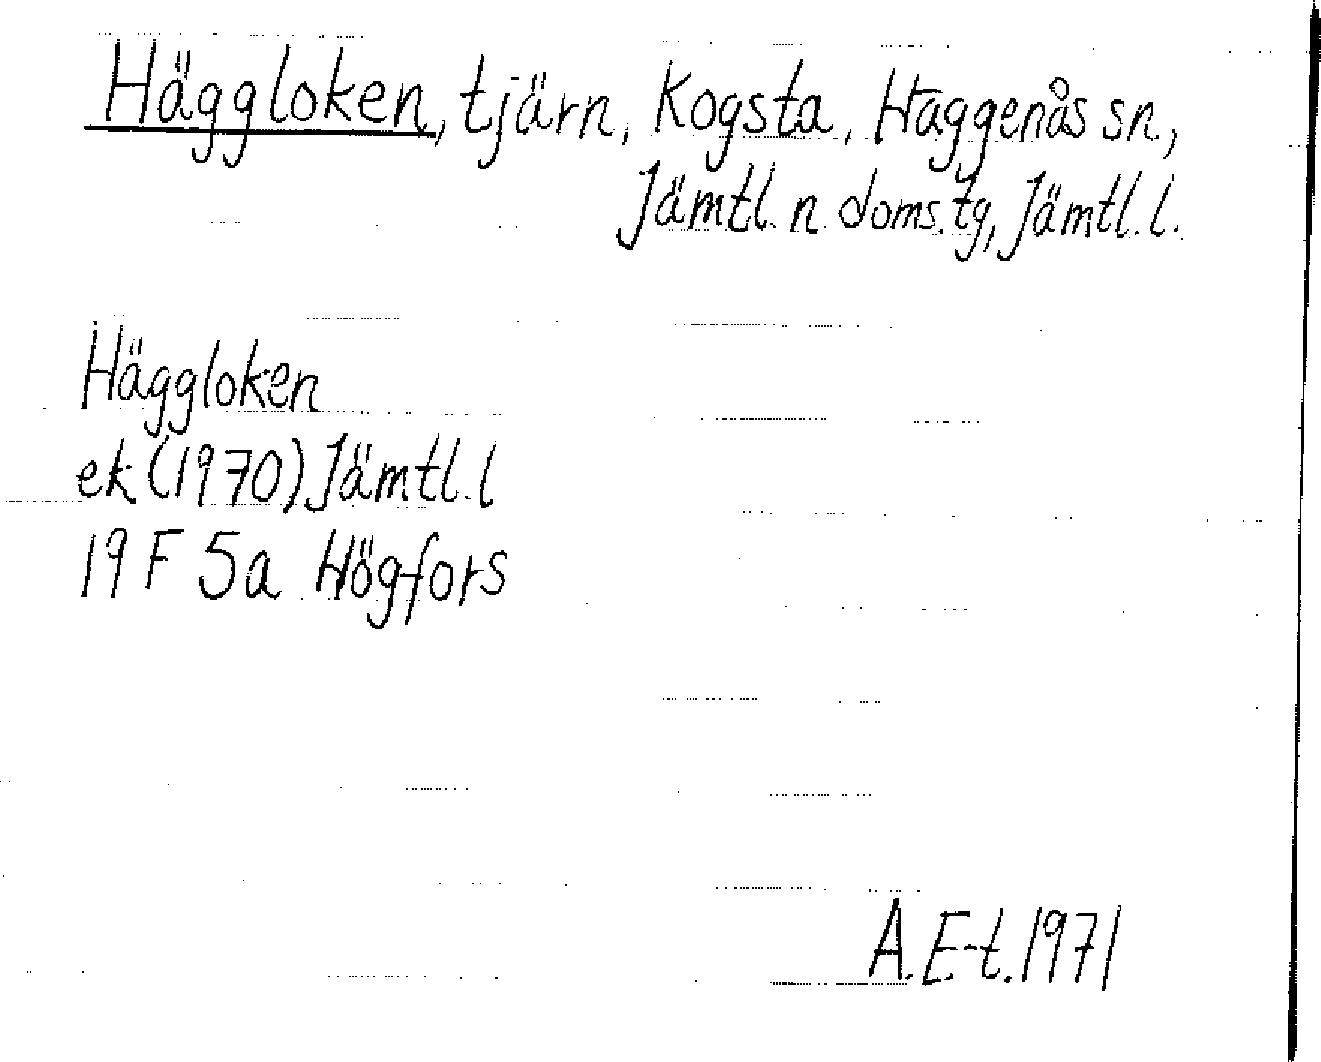 Häggloken, tjärn, Kogsta, Häggenås sn,
Jämtl. n. doms.tg, Jämtl. l.
Häggloken
ek (1970) Jämtl. l
19 F 5a Högfors
A. E-t. 1971